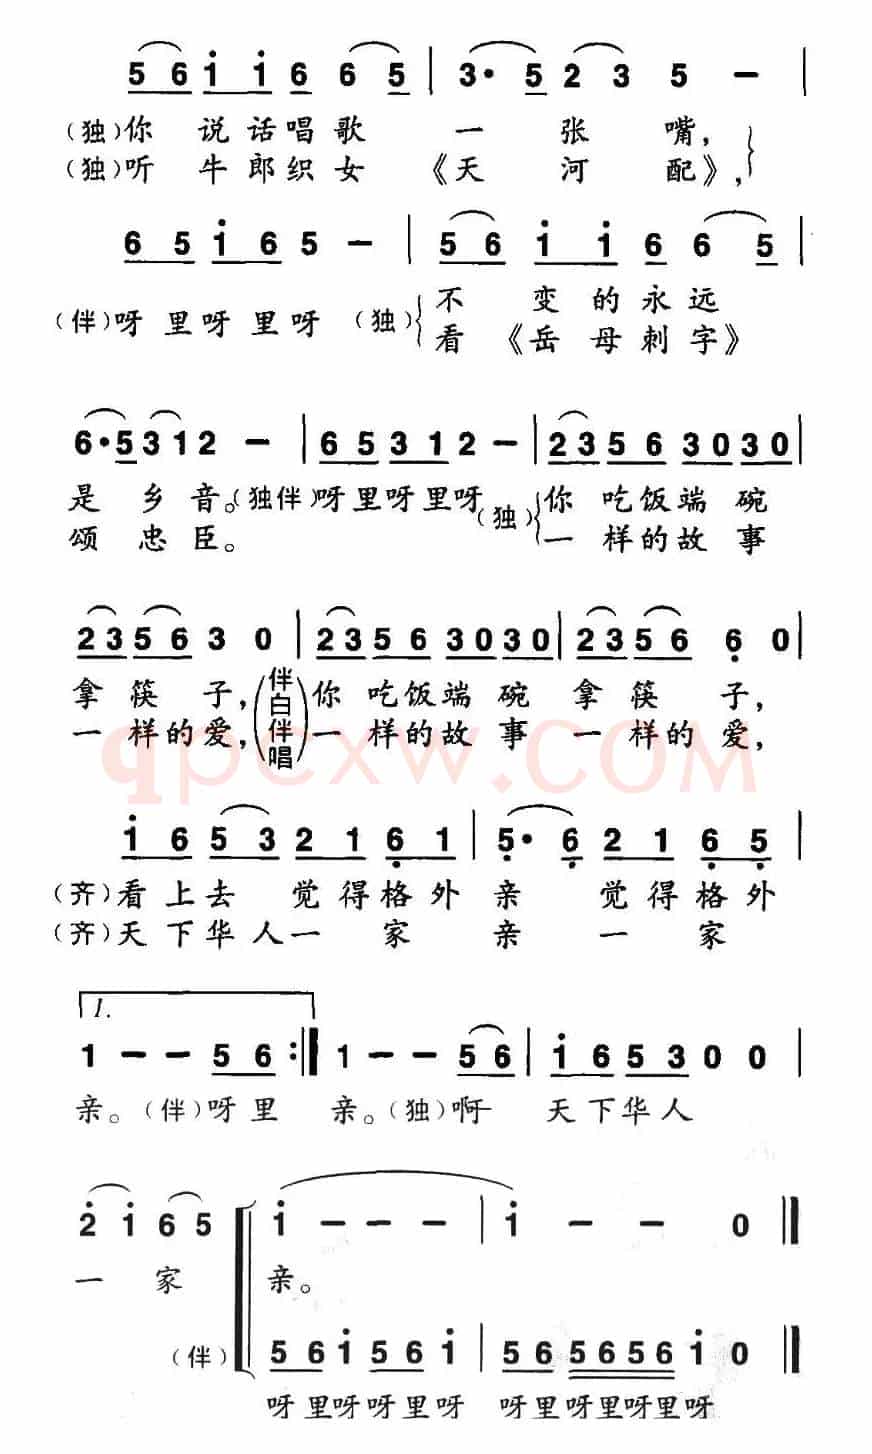 5 6 i i 6 6 5 | 3· 5 2 3 5 — |
（独）你 说 话 唱 歌 一 张 嘴，
（独）听 牛 郎 织 女 《天 河 配》，
6 5 i 6 5 — | 5 6 i i 6 6 5 |
（伴）呀 里 呀 里 呀 （独） 不 变 的 永 远
看 《岳 母 刺 字》
6·5 3 1 2 — | 6 5 3 1 2 — | 2 3 5 6 3 0 3 0 |
是 乡 音。（独伴）呀里呀里呀 （独） 你 吃饭端 碗
颂 忠 臣。 一 样的故 事
2 3 5 6 3 0 | 2 3 5 6 3 0 3 0 | 2 3 5 6 6 0 |
拿 筷 子，（伴白伴唱）你 吃饭端 碗 拿 筷 子，
一 样的爱， 一 样的故 事 一 样的 爱，
qpcxw.COM
i 6 5 3 2 1 6 1 | 5· 6 2 1 6 5 |
（齐）看上去 觉得格外 亲 觉得格外
（齐）天下华人一 家 亲 一 家
1.
1 — — 5 6 :| 1 — — 5 6 | i 6 5 3 0 0 |
亲。（伴）呀里 亲。（独）啊 天下华人
2 i 6 5 i — — — | i — — 0 ||
一 家 亲。
（伴） 5 6 i 5 6 i | 5 6 5 6 5 6 i 0 ||
呀里呀呀里呀 呀里呀里呀里呀